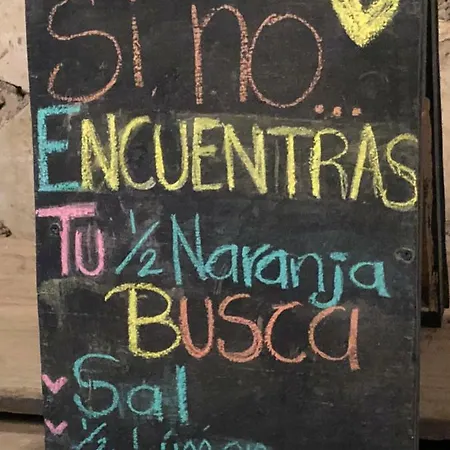 Si no...
ENCUENTRAS
TU 1/2 Naranja
BUSCA
Sal
1/2 Limon